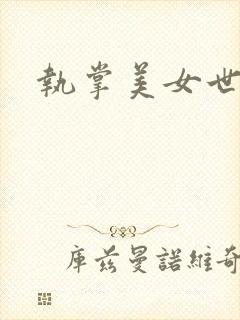 執掌美女世
庫茲曼諾維奇